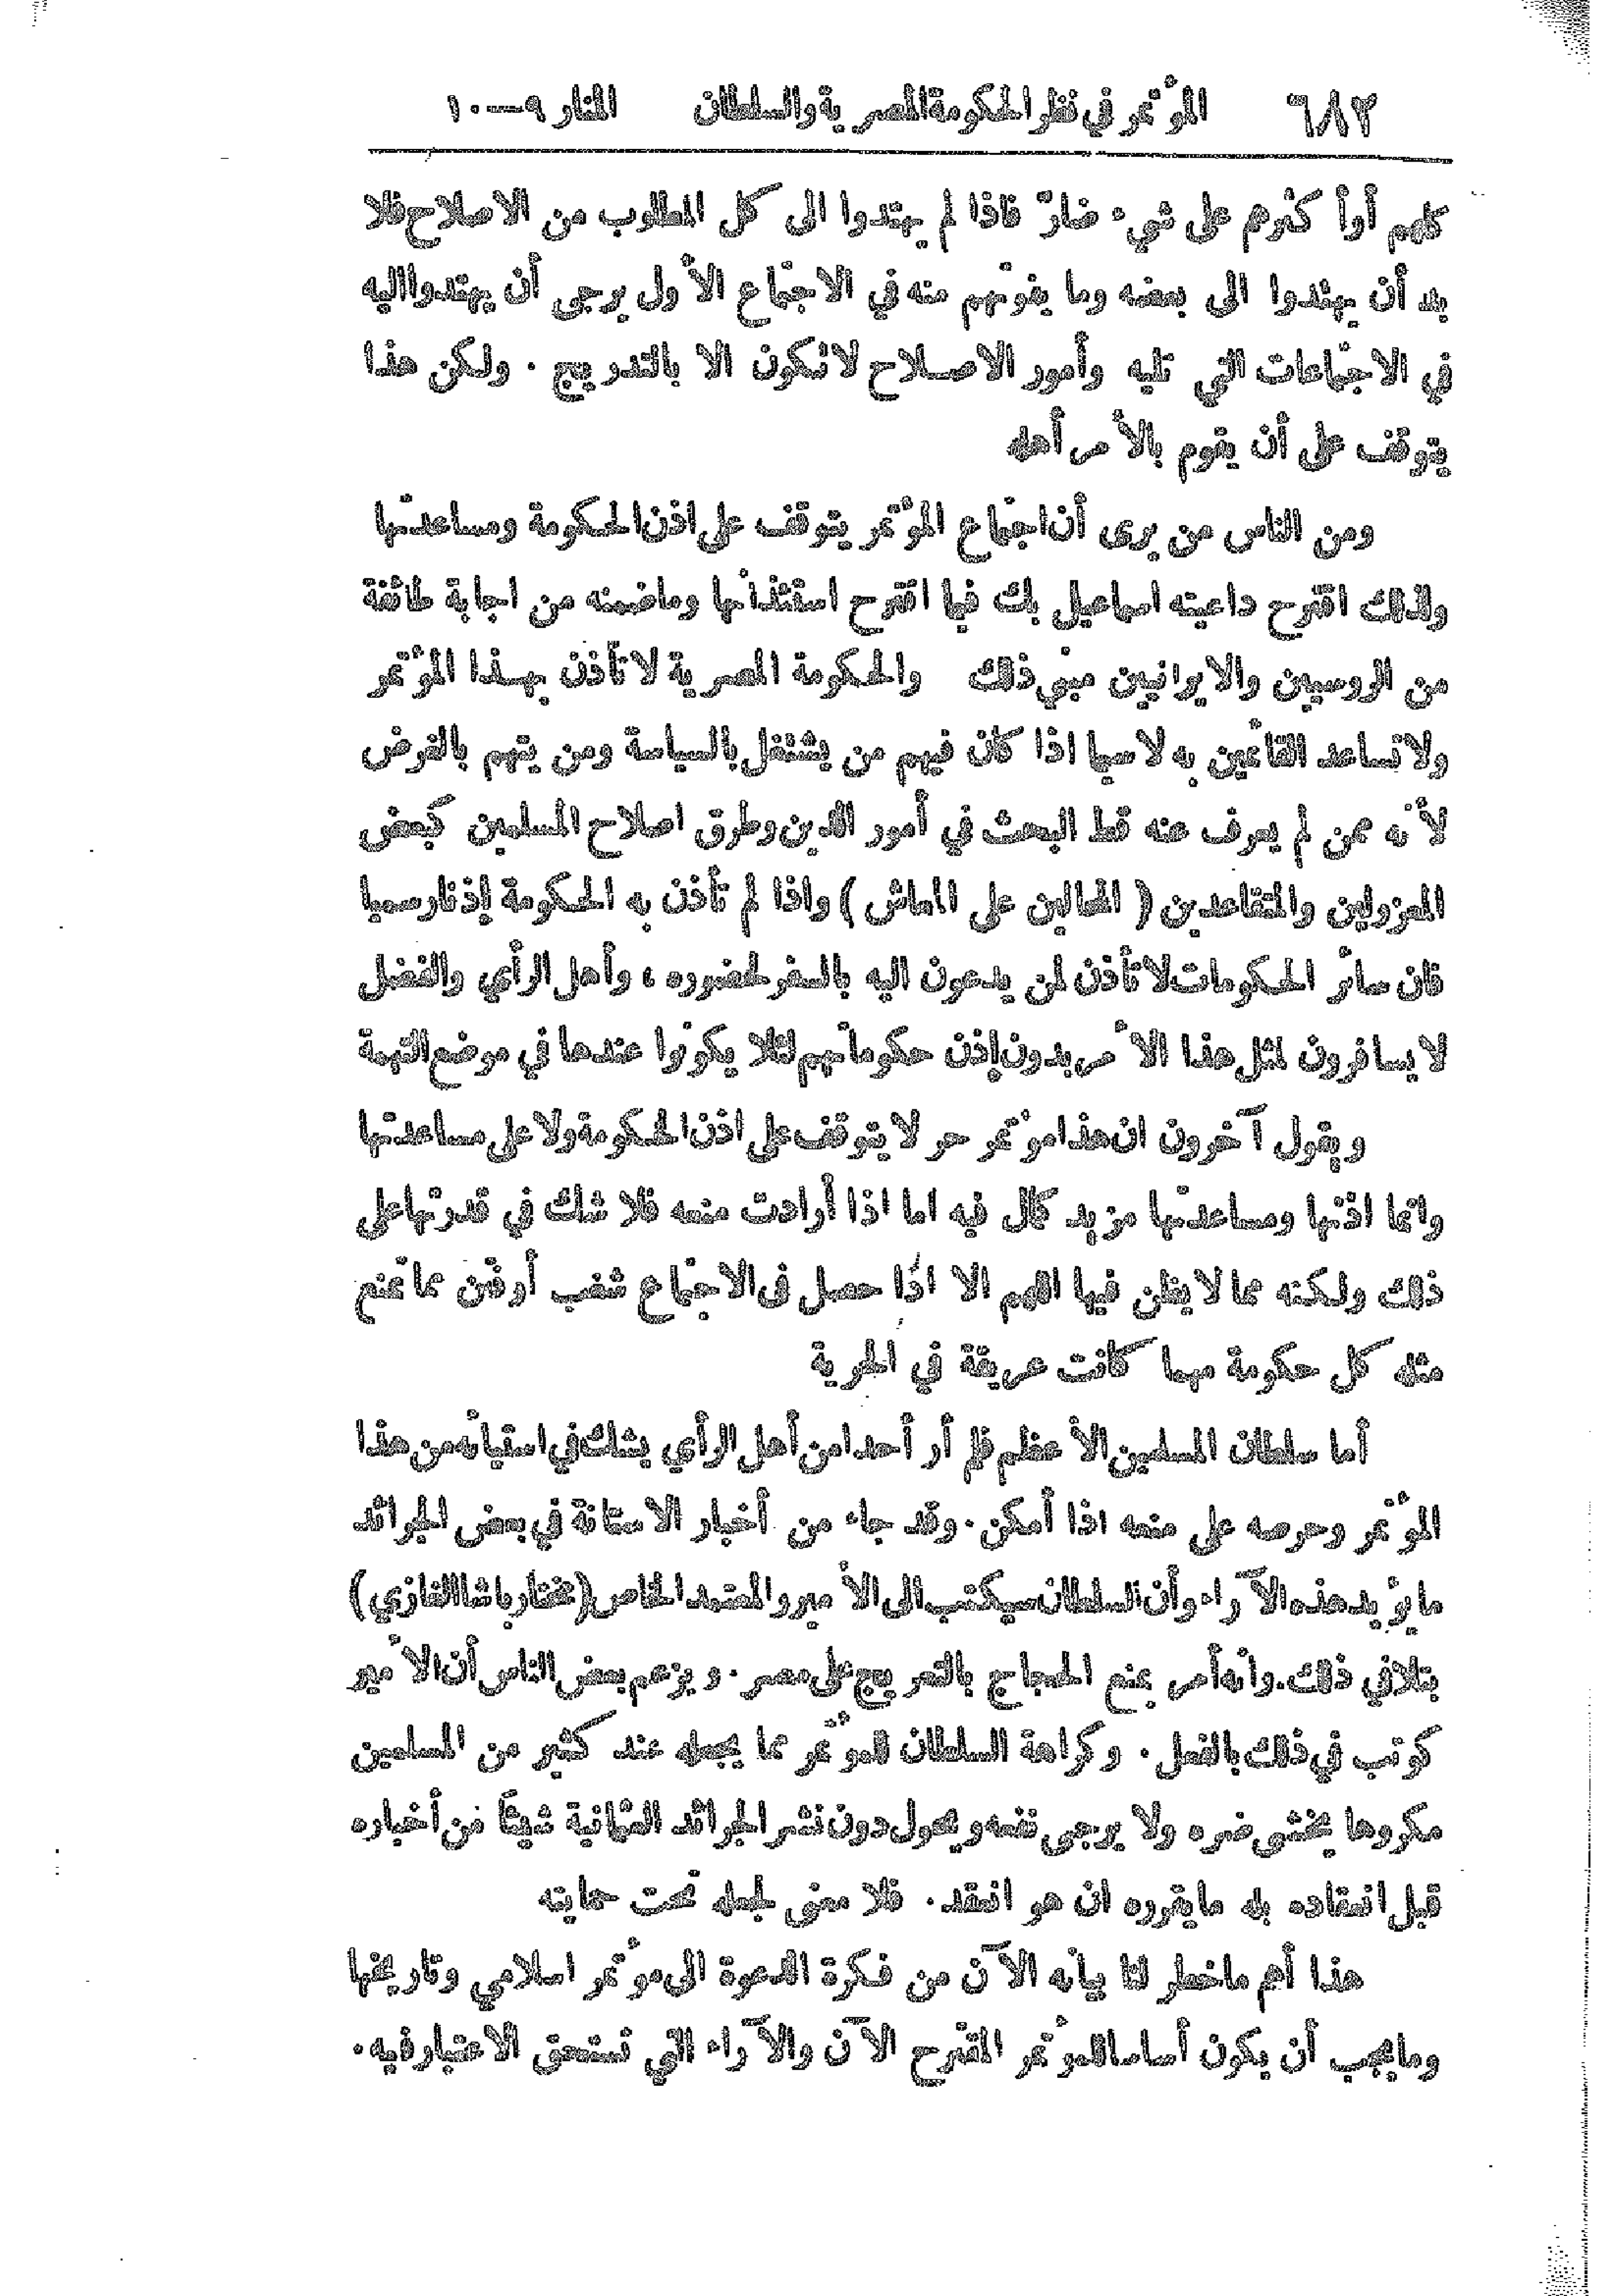 ٦٨٢ المؤتمر في نظر الحكومة المصرية والسلطان المنار ٩-١٠
كلهم أو أكثرهم على شيء ضارّ فاذا لم يهتدوا الى كل المطلوب من الاصلاح فلا
بد أن يهتدوا الى بعضه وما يفوتهم منه في الاجتماع الأول يرجى أن يهتدوا اليه
في الاجتماعات التي تليه وأمور الاصلاح لا تكون الا بالتدريج . ولكن هذا
يتوقف على أن يقوم بالأمر أهله
ومن الناس من يرى أن اجتماع المؤتمر يتوقف على اذن الحكومة ومساعدتها
ولذلك اقترح داعيته اسماعيل بك فيما اقترح استئذانها وما ضمنه من اجابة طائفة
من الروسيين والايرانيين مبني ذلك والحكومة المصرية لا تأذن بهذا المؤتمر
ولا تساعد القائمين به لا سيما اذا كان فيهم من يشتغل بالسياسة ومن يتهم بالغرض
لأنه ممن لم يعرف عنه قط البحث في أمور الدين وطرق اصلاح المسلمين كبعض
المعزولين والمتقاعدين ( المحالين على المعاش ) واذا لم تأذن به الحكومة إذنا رسميا
فان سائر الحكومات لا تأذن لمن يدعون اليه بالسفر لحضوره ، وأهل الرأي والفضل
لا يسافرون لمثل هذا الأمر بدون إذن حكوماتهم لئلا يكونوا عندها في موضع التهمة
ويقول آخرون ان هذا مؤتمر حر لا يتوقف على اذن الحكومة ولا على مساعدتها
وانما اذنها ومساعدتها مزيد كمال فيه اما اذا أرادت منعه فلا شك في قدرتها على
ذلك ولكنه مما لا يظن فيها اللهم الا اذا حصل فى الاجتماع شغب أو فتن مما تمنع
مثله كل حكومة مهما كانت عريقة في الحرية
أما سلطان المسلمين الأعظم فلم أر أحدا من أهل الرأي يشك في استيائه من هذا
المؤتمر وحرصه على منعه اذا أمكن . وقد جاء من أخبار الاستانة في بعض الجرائد
ما يؤيد هذه الآراء وأن السلطان سيكتب الى الأمير والمعتمد الخاص (مختار باشا الغازي)
بتلافي ذلك . وأنه أمر بمنع الحجاج بالتعريج على مصر . ويزعم بعض الناس أن الأمير
كوتب في ذلك بالفعل . وكراهة السلطان للمؤتمر مما يجعله عند كثير من المسلمين
مكروها يخشى ضره ولا يرجى نفعه ويحول دون نشر الجرائد العثمانية شيئًا من أخباره
قبل انعقاده بله ما يقرره ان هو انعقد . فلا معنى لجعله تحت حمايته
هذا أهم ما خطر لنا بيانه الآن من فكرة الدعوة الى مؤتمر اسلامي وتاريخها
وما يجب أن يكون أساسا للمؤتمر المقترح الآن والآراء التي تستحق الاعتبار فيه .